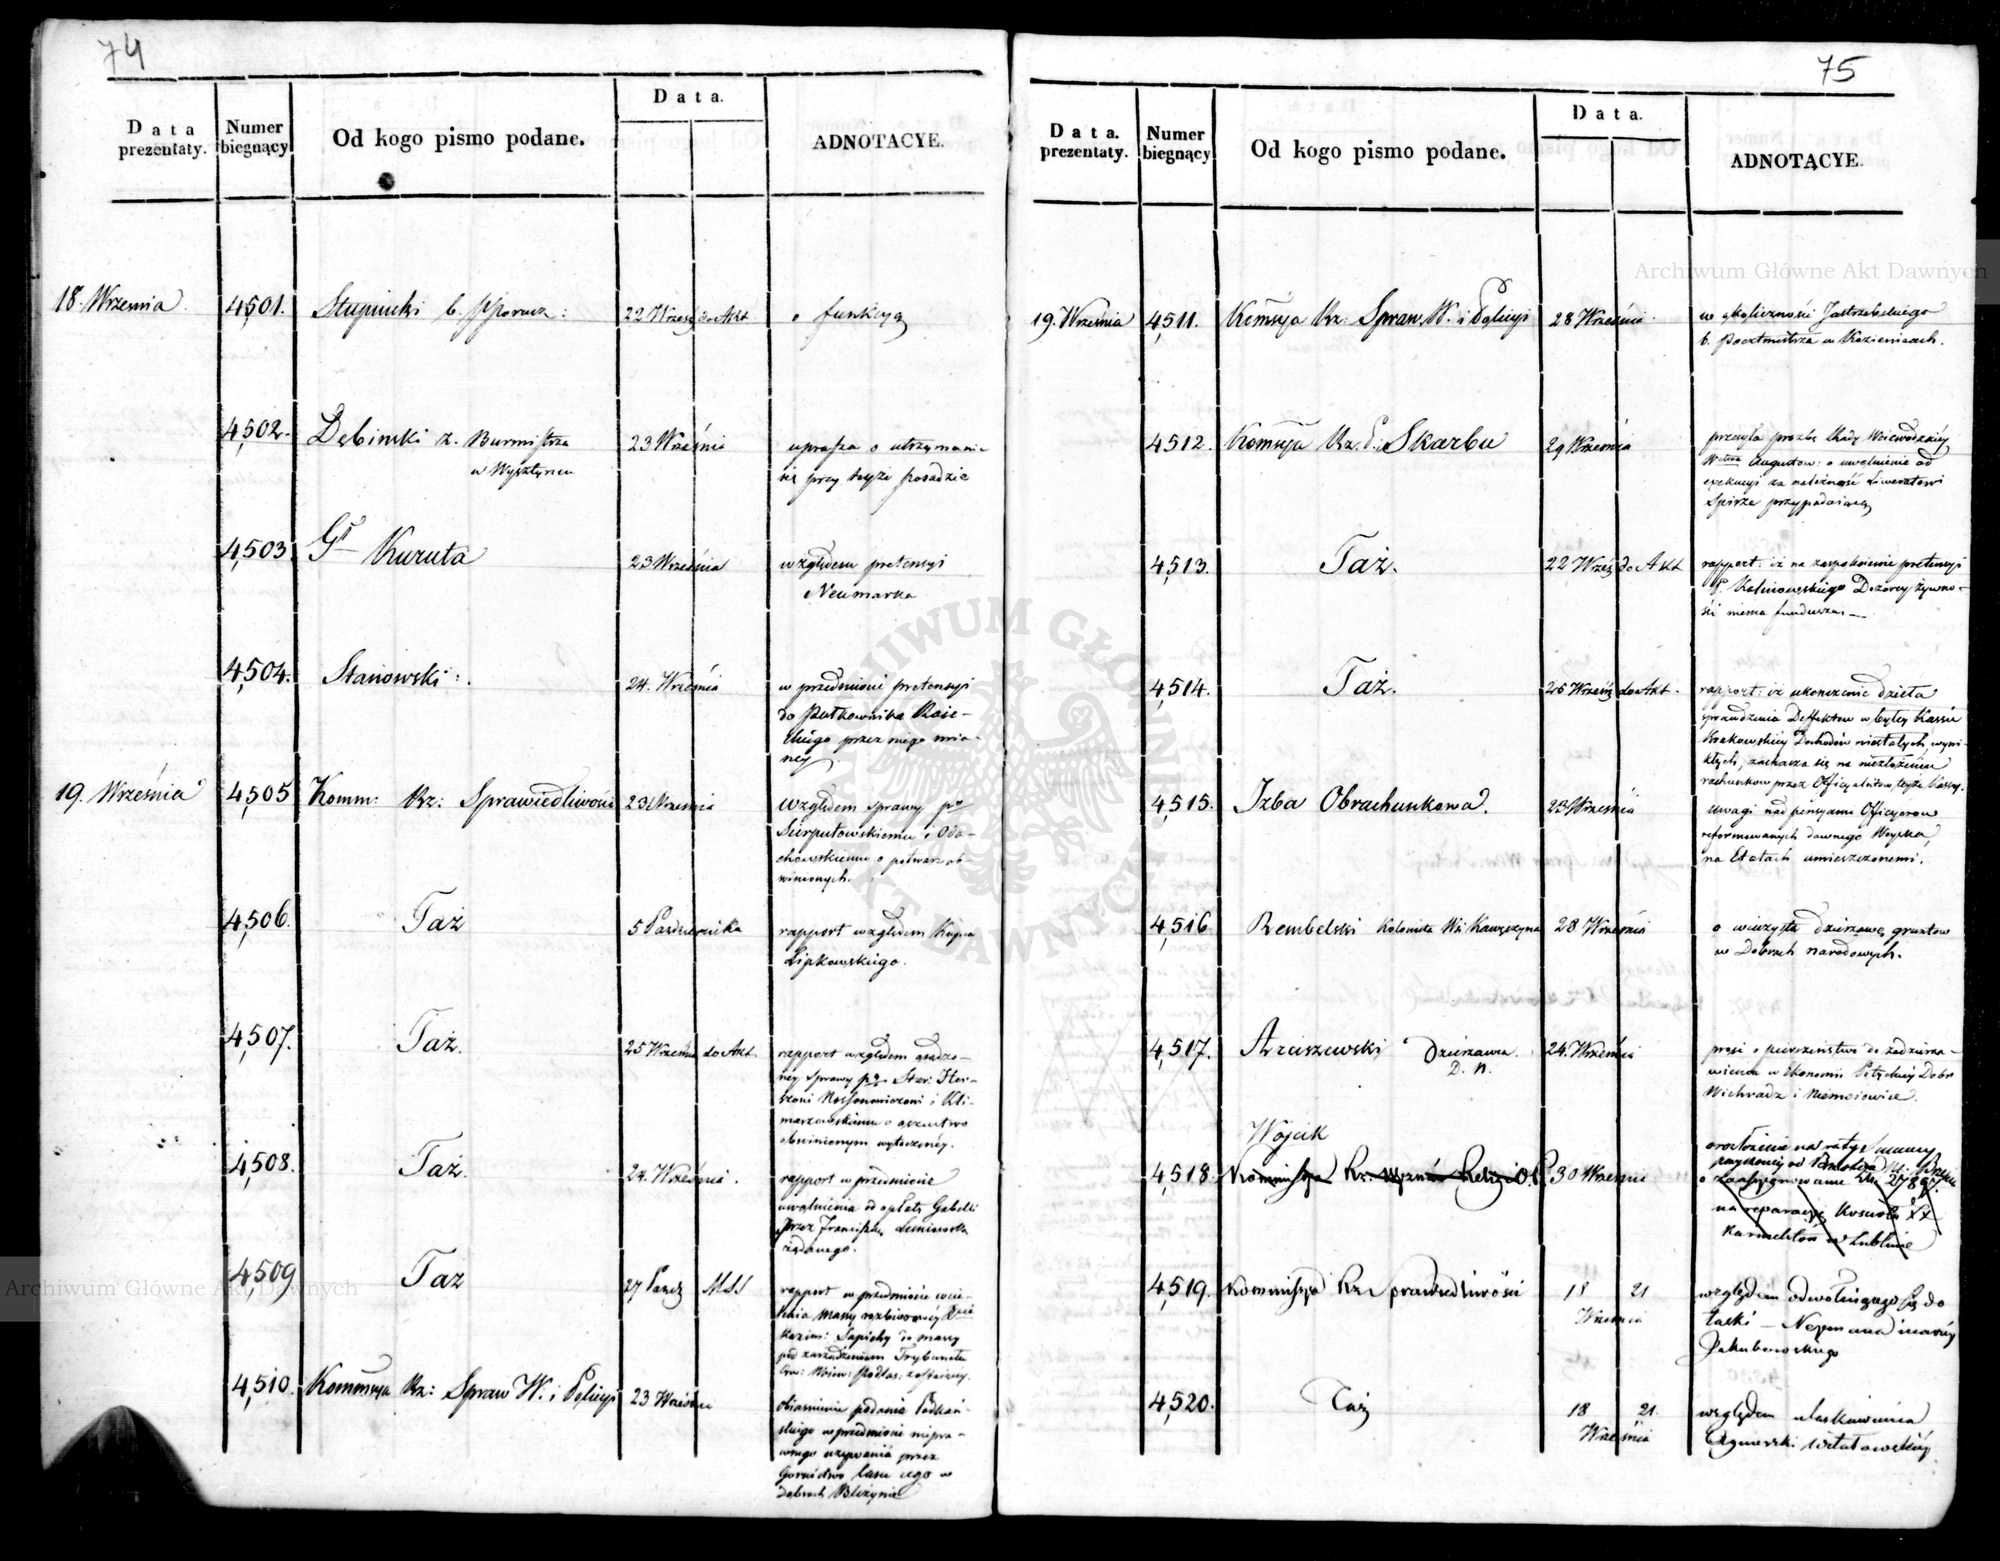 74
Data prezentaty.
Numer biegnący
Od kogo pismo podane.
Data.
ADNOTACYE.
18. Września
4,501.
Słupiński b. pporucz:
22 Wrześ do Akt
o funkcyą
4,502.
Dębinski z. Burmistrza
w Wysztyncu
23 Wrześnie
uprasza o utrzymanie
się przy teyże posadzie
4,503.
Gł Kuruta
23 Września
względem pretensyi
Neumarka
4,504.
Stanowski.
24. Września
w przedmiocie pretensyi
do Pułkownika
przez niego mia-
ney
19. Września
4,505
Komm: Rz: Sprawiedliwości
23 Września
względem sprawy pko
Sierputowskiemu i Oda-
chowskiemu o potwarz ob-
winionych.
4,506.
Taż
5 Października
rapport względem Kupca
Lipkowskiego.
4,507.
Taż.
25 Września do Akt.
rapport względem osądzo-
ney sprawy pko Star: Her-
i Kli-
o oszustwo
obwinionym wytoczoney.
4,508.
Taż.
24. Września.
rapport w przedmiocie
uwolnienia od opłaty Gabelli
przez Franciszkę
żądanego.
4,509
Taż
27 Paźdz
rapport w przedmiocie wcie-
lenia massy rozbiorowey
Kazim: Sapiehy do massy
pod zarządzeniem Trybunału
Cyw: Wojew: Podlas: zostaiącey.
4,510.
Kommissya Rz: Spraw W. i Policyi
23 Wrześnie
obiasnienie podania
skiego w przedmiocie niepra-
wnego używania przez
Gornictwo lasu iego w
dobrach Bliżynie
75
Data. prezentaty.
Numer biegnący
Od kogo pismo podane.
Data.
ADNOTĄCYE.
19. Września
4,511.
Komssya Rz: Spraw. W. i Policyi
28 Września
w okoliczności Jastrzebskiego
b. Pocztmistrza w Kozienicach.
4,512.
Komssya Rz. P. i Skarbu
29 Września
przesyła prozbę Rady Woiewodzkiey
Wdztwa Augustow: o uwolnienie od
exekucyi za należność Liwerantowi
Spirze przypadaiącą
4,513.
Taż.
22 Wrześ do Akt
rapport: iż na zaspokoienie pretensyi
P. Kalinowskiego Dozorcy żywno-
ści niema funduszu.
4,514.
Taż.
26 Wrześ do Akt.
rapport: iż ukonczenie dzieła
sprawdzenia Deffektow w byłey Kassie
Krakowskiey Dochodów niestałych, wyni-
kłych, zachacza się na niezłożeniu
rachunkow przez Officyalistow teyże Kassy.
4,515.
Izba Obrachunkowa.
23 Września
uwagi nad pensyami Officyerow
reformowanych dawnego Woyska,
na Etatach umieszczonemi.
4,516
Rembelski Kolonista Wsi Kawęczyna
28 Września
o wieczystą dzierzawę gruntow
w Dobrach narodowych.
4,517.
Arciszewski Dzierzawca
D. N.
24. Września
prosi o pierszeństwo do zadzierża-
wienia w Ekonomii Dobr
Wichradz i Niemoiowice.
Wójcik
4,518.
Kommissya Rz: Wyznań Religi i O. P.
30 Wrześnie
o rozłożenie na raty summy
o zaassygnowanie
na reparacyę Kościoła XX
Karmelitów w Lublinie
4,519.
Kommissya Rz Sprawiedliwości
18 21
Września
względem odwołuiącego się do
łaski
Jakubowskiego
4,520.
Taż
18 21.
Września
względem ułaskawienia
Agnieszki
Archiwum Główne Akt Dawnych
Archiwum Główne Akt Dawnych
ARCHIWUM GŁÓWNE AKT DAWNYCH